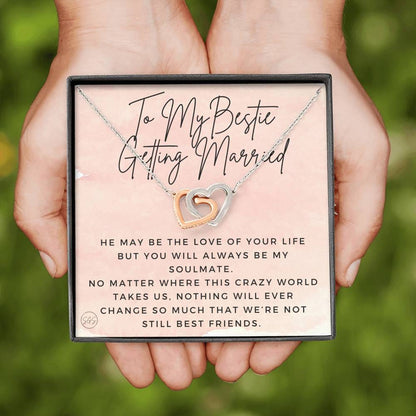 To My Bestie
Getting Married
HE MAY BE THE LOVE OF YOUR LIFE
BUT YOU WILL ALWAYS BE MY
SOULMATE.
NO MATTER WHERE THIS CRAZY WORLD
TAKES US, NOTHING WILL EVER
CHANGE SO MUCH THAT WE'RE NOT
STILL BEST FRIENDS.